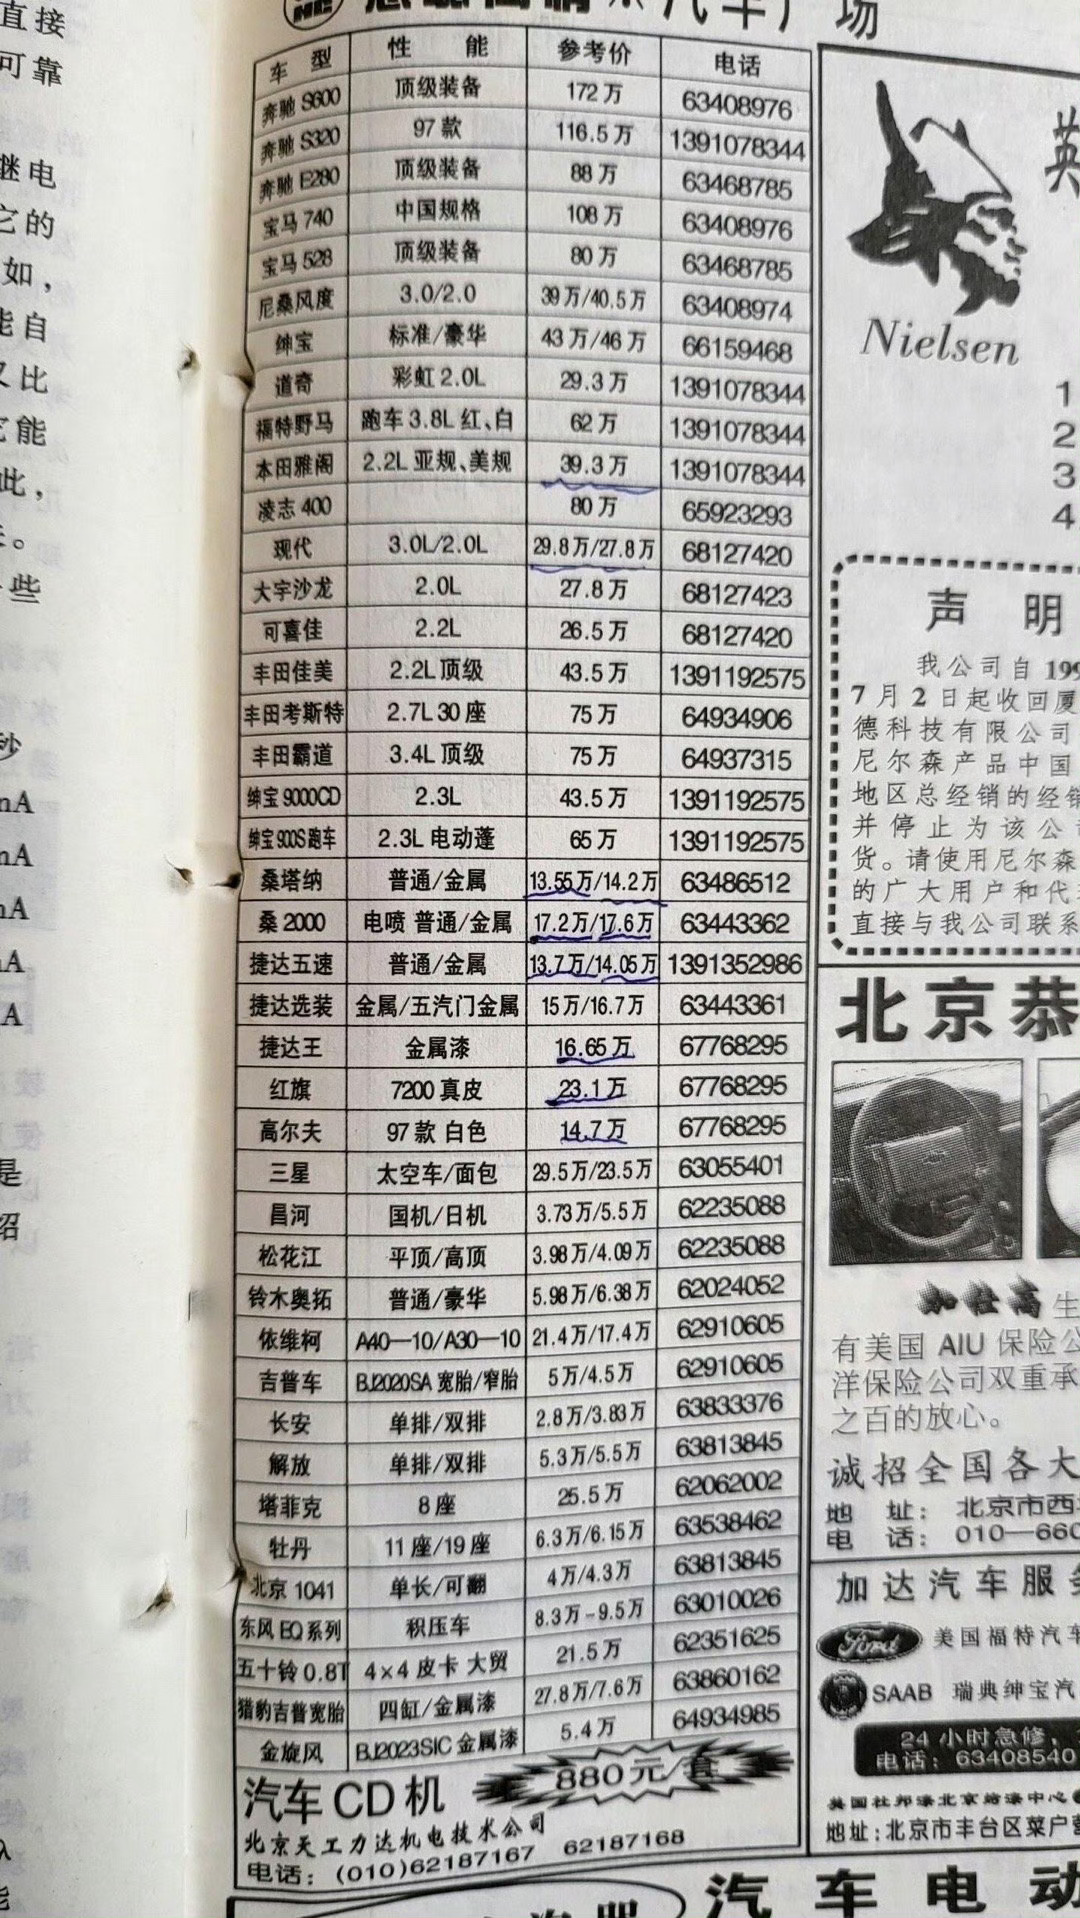 直接
可靠
继电
它的
如，
能自
又比
它能
此，
些
秒
nA
nA
nA
A
A
是
绍
汽车广场
车型 性能 参考价 电话
奔驰 S600 顶级装备 172万 63408976
奔驰 S320 97款 116.5万 1391078344
奔驰 E280 顶级装备 88万 63468785
宝马 740 中国规格 108万 63408976
宝马 528 顶级装备 80万 63468785
尼桑风度 3.0/2.0 39万/40.5万 63408974
绅宝 标准/豪华 43万/46万 66159468
道奇 彩虹 2.0L 29.3万 1391078344
福特野马 跑车 3.8L 红、白 62万 1391078344
本田雅阁 2.2L 亚规、美规 39.3万 1391078344
凌志 400 80万 65923293
现代 3.0L/2.0L 29.8万/27.8万 68127420
大宇沙龙 2.0L 27.8万 68127423
可喜佳 2.2L 26.5万 68127420
丰田佳美 2.2L 顶级 43.5万 1391192575
丰田考斯特 2.7L 30座 75万 64934906
丰田霸道 3.4L 顶级 75万 64937315
绅宝 9000CD 2.3L 43.5万 1391192575
绅宝 900S 跑车 2.3L 电动蓬 65万 1391192575
桑塔纳 普通/金属 13.55万/14.2万 63486512
桑 2000 电喷 普通/金属 17.2万/17.6万 63443362
捷达五速 普通/金属 13.7万/14.05万 1391352986
捷达选装 金属/五汽门金属 15万/16.7万 63443361
捷达王 金属漆 16.65万 67768295
红旗 7200 真皮 23.1万 67768295
高尔夫 97款 白色 14.7万 67768295
三星 太空车/面包 29.5万/23.5万 63055401
昌河 国机/日机 3.73万/5.5万 62235088
松花江 平顶/高顶 3.98万/4.09万 62235088
铃木奥拓 普通/豪华 5.98万/6.38万 62024052
依维柯 A40—10/A30—10 21.4万/17.4万 62910605
吉普车 BJ2020SA 宽胎/窄胎 5万/4.5万 62910605
长安 单排/双排 2.8万/3.83万 63833376
解放 单排/双排 5.3万/5.5万 63813845
塔菲克 8座 25.5万 62062002
牡丹 11座/19座 6.3万/6.15万 63538462
北京 1041 单长/可翻 4万/4.3万 63813845
东风 EQ 系列 积压车 8.3万-9.5万 63010026
五十铃 0.8T 4×4 皮卡 大贸 21.5万 62351625
猎豹吉普宽胎 四缸/金属漆 27.8万/7.6万 63860162
金旋风 BJ2023SIC 金属漆 5.4万 64934985
汽车CD机 880元/套
北京天工力达机电技术公司
电话：(010)62187167 62187168
英
Nielsen
1
2
3
4
声 明
我公司自 199
7月2日起收回厦
德科技有限公司
尼尔森产品中国
地区总经销的经销
并停止为该公司
货。请使用尼尔森
的广大用户和代
直接与我公司联系
北京恭
加仕高生
有美国 AIU 保险公
洋保险公司双重承
之百的放心。
诚招全国各大
地 址：北京市西
电 话：010—660
加达汽车服务
Ford 美国福特汽车
SAAB 瑞典绅宝汽
24小时急修，
电话：63408540
英国社邦漆北京给漆中心
地址：北京市丰台区菜户营
汽车电动